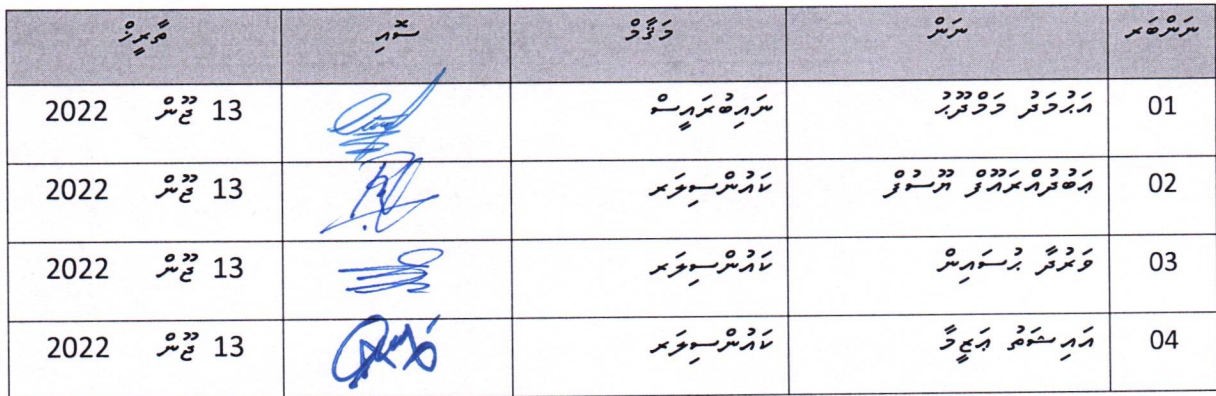 ނަންބަރ ނަން މަޤާމް ސޮއި ތާރީޚް
01 އަޙުމަދު މަމްދޫޙު ނައިބުރައީސް 13 ޖޫން 2022
02 ޢަބުދުއްރައޫފް ޔޫސުފް ކައުންސިލަރ 13 ޖޫން 2022
03 ވަރުދާ ޙުސައިން ކައުންސިލަރ 13 ޖޫން 2022
04 އައިޝަތު ޢަޒީމާ ކައުންސިލަރ 13 ޖޫން 2022